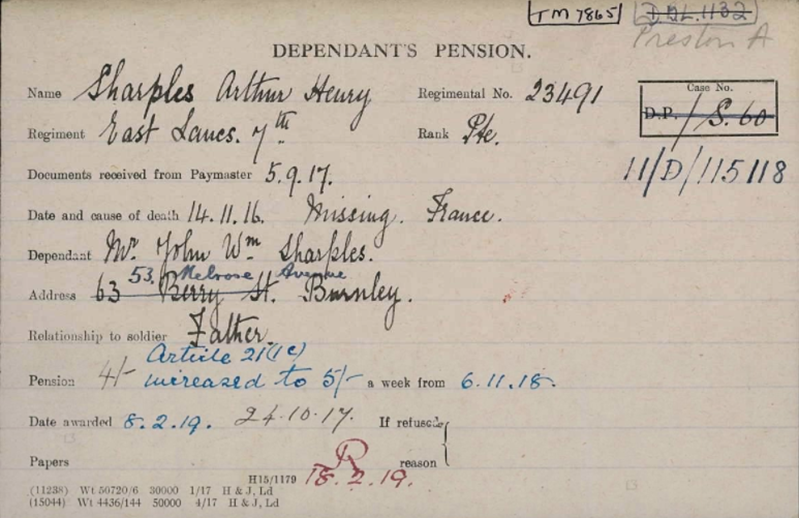 TM 7865 D.B.L. 1132
Preston A
DEPENDANT'S PENSION.
Name Sharples Arthur Henry Regimental No. 23491 Case No.
D.P. / S. 60
Regiment East Lancs. 7th Rank Pte.
11/D/115118
Documents received from Paymaster 5.9.17.
Date and cause of death 14.11.16. Missing. France.
Dependant Mr John Wm Sharples.
53. Melrose Avenue
Address 63 Berry St. Burnley.
Relationship to soldier Father.
Article 21(1c)
Pension 4/- increased to 5/- a week from 6.11.18.
Date awarded 8.2.19. 24.10.17. If refused,
Papers R reason
H15/1179 18.2.19.
(11238) Wt 50720/6 30000 1/17 H & J, Ld
(15044) Wt 4436/144 50000 4/17 H & J, Ld